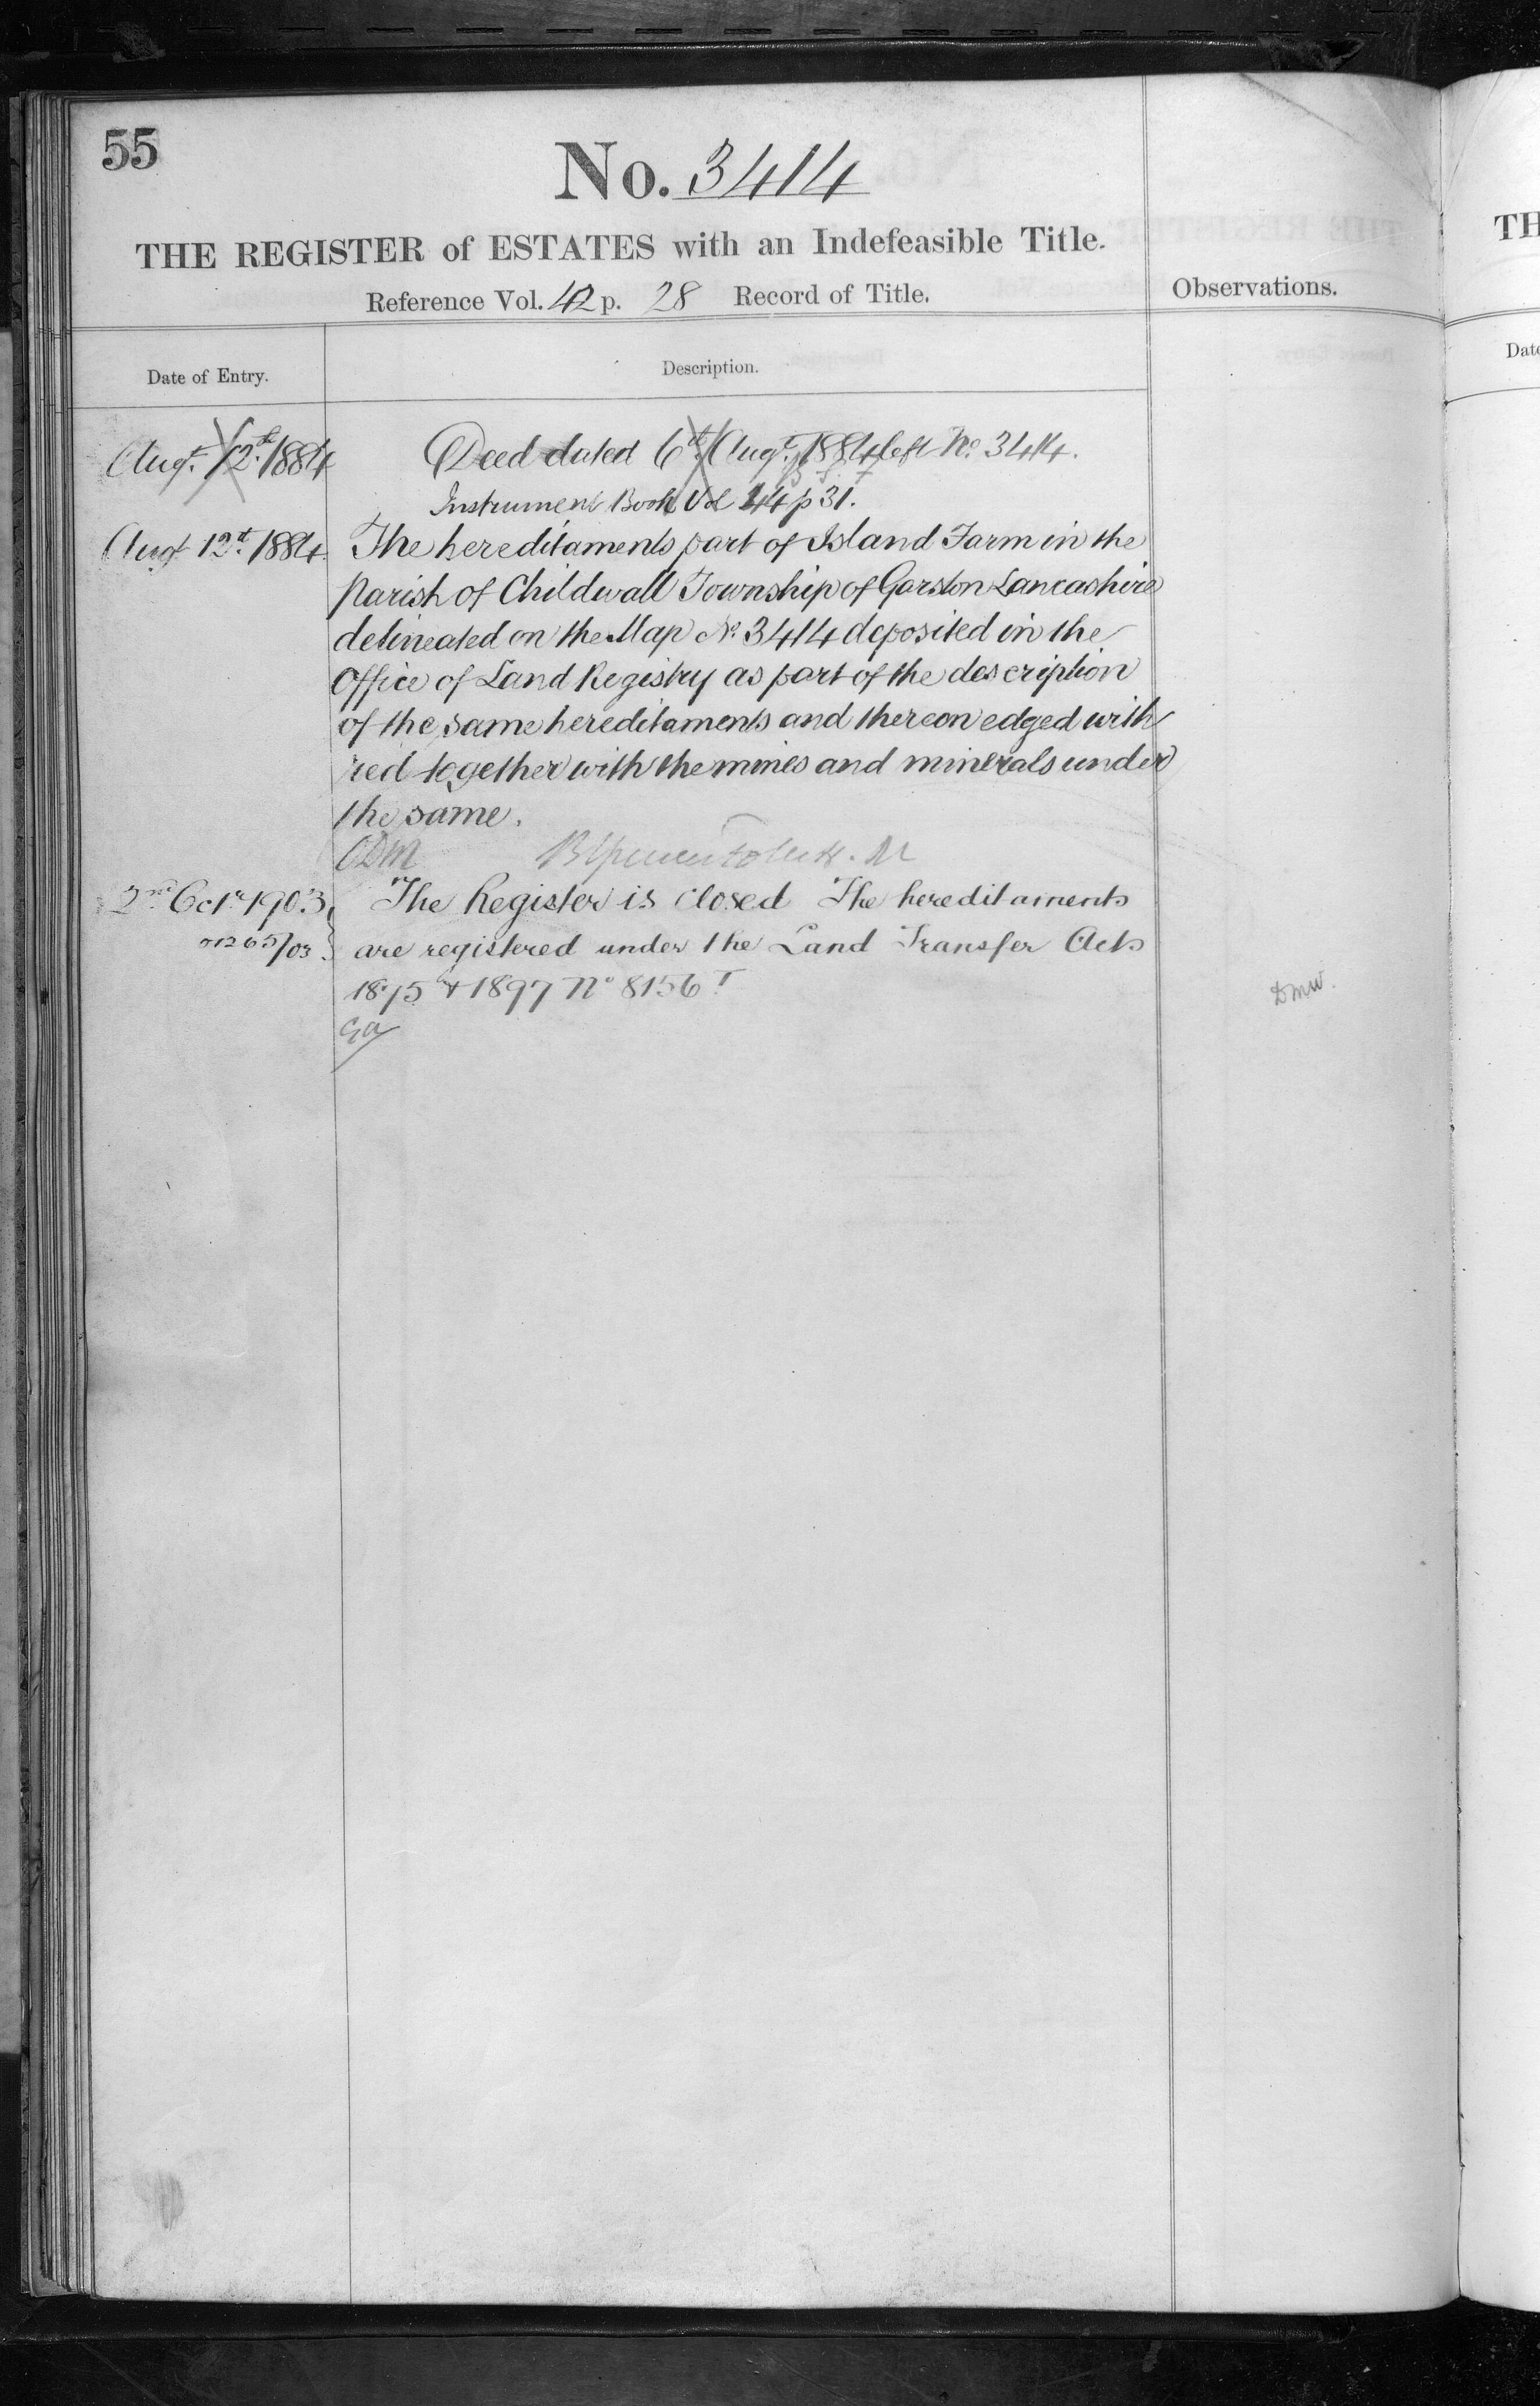 55
No. 3414
THE REGISTER of ESTATES with an Indefeasible Title.
Reference Vol. 42 p. 28 Record of Title.
Observations.
Date of Entry.
Description.
Augt. 12th 1884
Deed dated 6th Augt. 1884 left No. 3414.
Instrument Book Vol 44 p 31.
Augt 12th 1884.
The hereditaments part of Island Farm in the
Parish of Childwall Township of Garston Lancashire
delineated on the Map No. 3414 deposited in the
Office of Land Registry as part of the description
of the same hereditaments and thereon edged with
red together with the mines and minerals under
the same.
2nd Octr 1903
The Register is closed The hereditaments
are registered under the Land Transfer Acts
1875 & 1897 No 8156
Dmw.
TH
Date